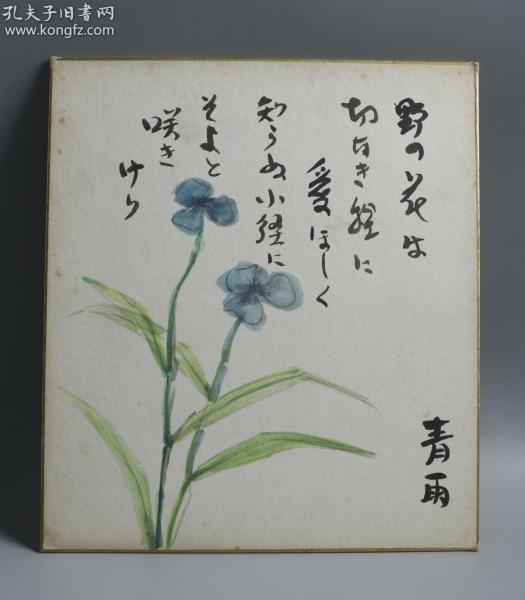 孔夫子旧书网
www.kongfz.com
野の花は
切なき程に
愛ほしく
知らぬ小径に
そよと
咲き
けり
青雨